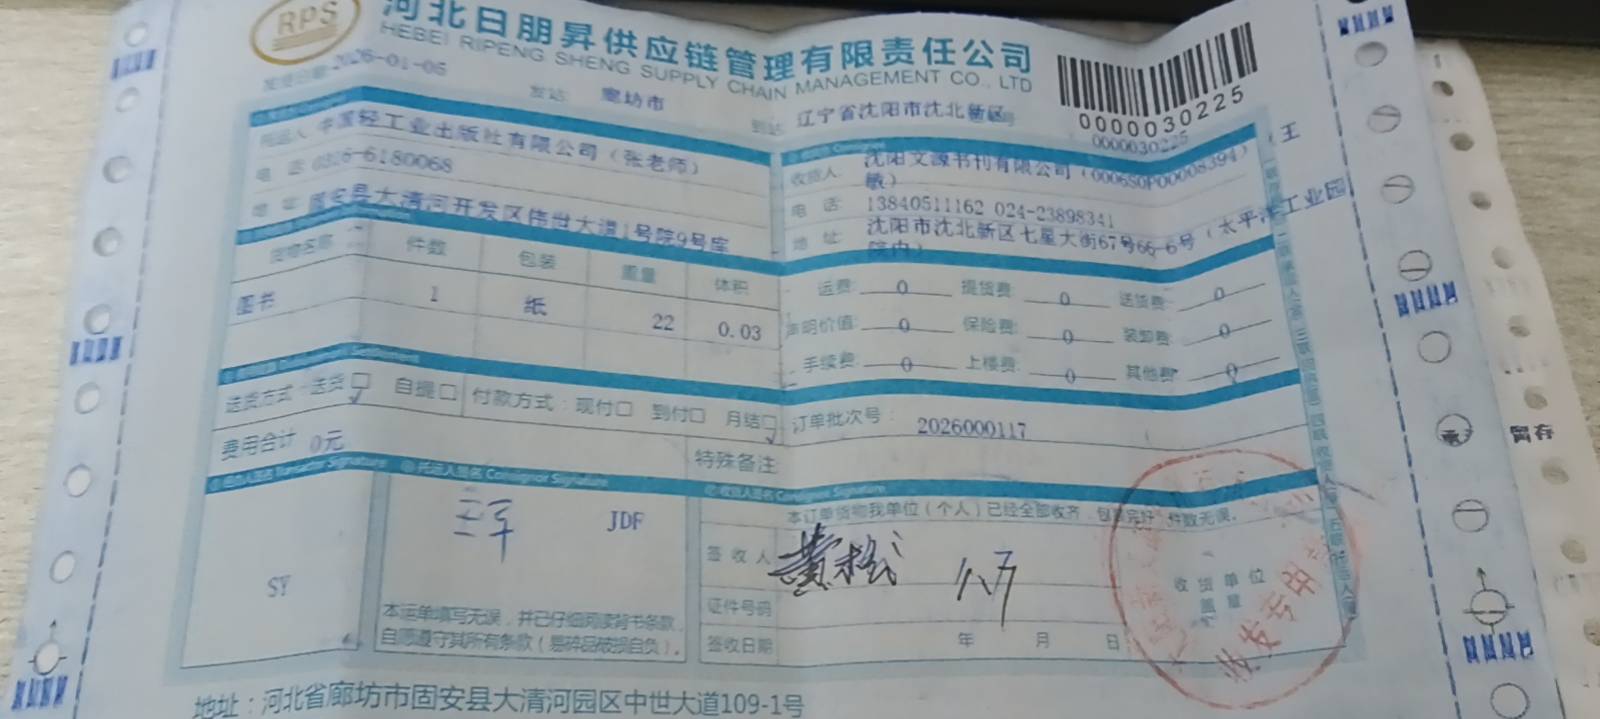 RPS
河北日朋昇供应链管理有限责任公司
HEBEI RIPENG SHENG SUPPLY CHAIN MANAGEMENT CO., LTD
发货日期 2026-01-05
发站 廊坊市
到站 辽宁省沈阳市沈北新区
0000030225
0000030225
托运人 中国轻工业出版社有限公司（张老师）
电 话 0316-6180068
地 址 固安县大清河开发区伟世大道1号院9号座
收货人: 沈阳文源书刊有限公司（0006S0P00008394）（王
敏）
电 话: 13840511162 024-23898341
地 址: 沈阳市沈北新区七星大街67号66-6号（太平洋工业园
院内）
货物名称 件数 包装 重量 体积
图书 1 纸 22 0.03
运费: 0 提货费: 0 送货费: 0
声明价值: 0 保险费: 0 装卸费: 0
手续费: 0 上楼费: 0 其他费: 0
送货方式：送货 自提 付款方式：现付 到付 月结
订单批次号： 2026000117
费用合计 0元
特殊备注
经办人签名 Transactor Signature
托运人签名 Consignor Signature
收货人签名 Consignee Signature
SY
JDF
本运单填写无误，并已仔细阅读背书条款，
自愿遵守其所有条款（易碎品破损自负）。
本订单货物我单位（个人）已经全部收齐，包装完好，件数无误。
签 收 人
证件号码
签收日期 年 月 日
收 货 单 位
盖 章
收发专用章
留存
地址：河北省廊坊市固安县大清河园区中世大道109-1号